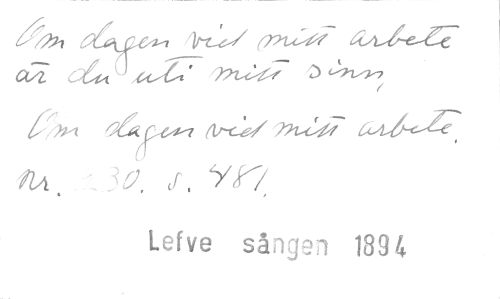 Om dagen vid mitt arbete
är du uti mitt sinn,
Om dagen vid mitt arbete.
nr. 230. s. 481.
Lefve sången 1894